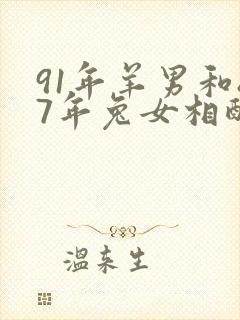 91年羊男和
7年兔女相
温来生